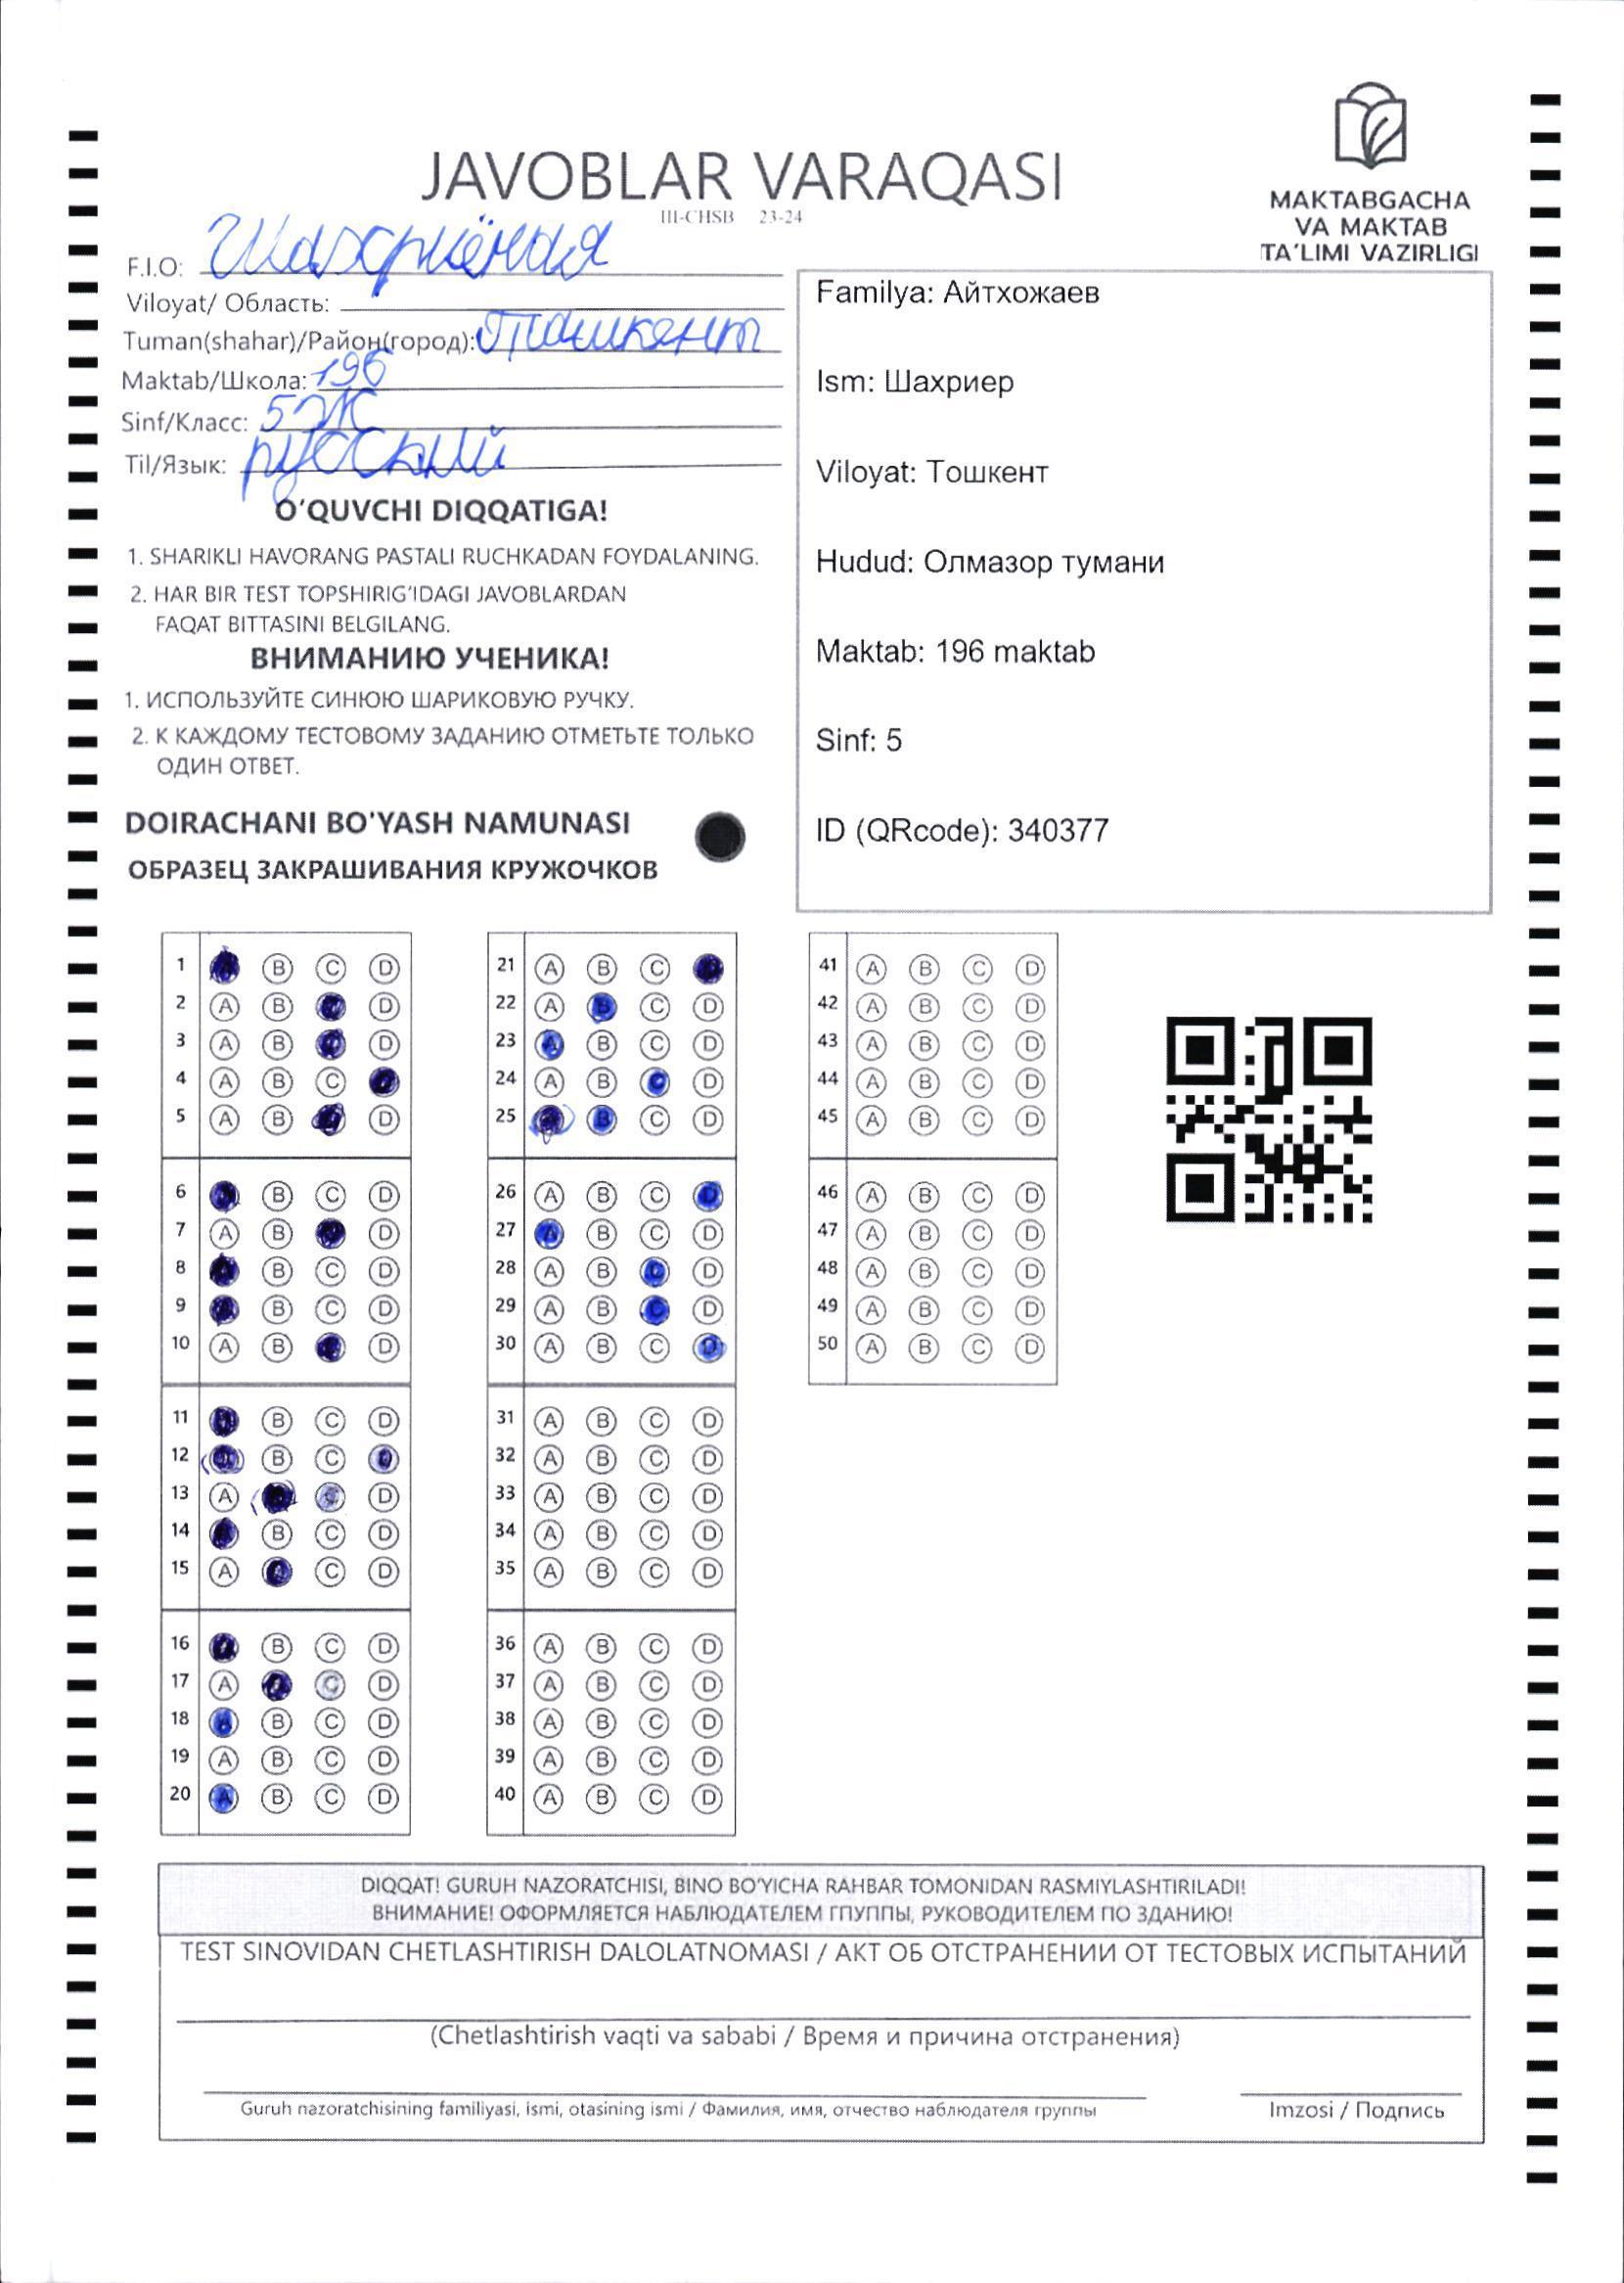 JAVOBLAR VARAQASI
III-CHSB 23-24
MAKTABGACHA
VA MAKTAB
TA'LIMI VAZIRLIGI
F.I.O:
Viloyat/ Область:
Tuman(shahar)/Район(город): Ташкент
Maktab/Школа: 196
Sinf/Класс: 5
Til/Язык: русский
Familya: Айтхожаев
Ism: Шахриер
Viloyat: Тошкент
Hudud: Олмазор тумани
Maktab: 196 maktab
Sinf: 5
ID (QRcode): 340377
O'QUVCHI DIQQATIGA!
1. SHARIKLI HAVORANG PASTALI RUCHKADAN FOYDALANING.
2. HAR BIR TEST TOPSHIRIG'IDAGI JAVOBLARDAN
FAQAT BITTASINI BELGILANG.
ВНИМАНИЮ УЧЕНИКА!
1. ИСПОЛЬЗУЙТЕ СИНЮЮ ШАРИКОВУЮ РУЧКУ.
2. К КАЖДОМУ ТЕСТОВОМУ ЗАДАНИЮ ОТМЕТЬТЕ ТОЛЬКО
ОДИН ОТВЕТ.
DOIRACHANI BO'YASH NAMUNASI
ОБРАЗЕЦ ЗАКРАШИВАНИЯ КРУЖОЧКОВ
1 B C D
2 A B D
3 A B D
4 A B C
5 A B D
6 B C D
7 A B D
8 B C D
9 B C D
10 A B D
11 B C D
12 B C
13 A C D
14 B C D
15 A C D
16 B C D
17 A C D
18 A B C D
19 A B C D
20 A B C D
21 A B C
22 A B C D
23 A B C D
24 A B C D
25 B C D
26 A B C D
27 A B C D
28 A B C D
29 A B C D
30 A B C D
31 A B C D
32 A B C D
33 A B C D
34 A B C D
35 A B C D
36 A B C D
37 A B C D
38 A B C D
39 A B C D
40 A B C D
41 A B C D
42 A B C D
43 A B C D
44 A B C D
45 A B C D
46 A B C D
47 A B C D
48 A B C D
49 A B C D
50 A B C D
DIQQAT! GURUH NAZORATCHISI, BINO BO'YICHA RAHBAR TOMONIDAN RASMIYLASHTIRILADI!
ВНИМАНИЕ! ОФОРМЛЯЕТСЯ НАБЛЮДАТЕЛЕМ ГПУППЫ, РУКОВОДИТЕЛЕМ ПО ЗДАНИЮ!
TEST SINOVIDAN CHETLASHTIRISH DALOLATNOMASI / АКТ ОБ ОТСТРАНЕНИИ ОТ ТЕСТОВЫХ ИСПЫТАНИЙ
(Chetlashtirish vaqti va sababi / Время и причина отстранения)
Guruh nazoratchisining familiyasi, ismi, otasining ismi / Фамилия, имя, отчество наблюдателя группы
Imzosi / Подпись